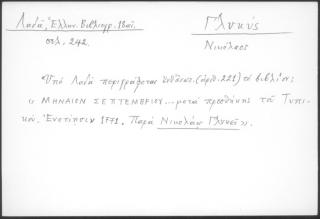 Λαδᾶ, Ἑλλην. Βιβλιογρ. 18αι.
σελ. 242.
Γλυκύς
Νικόλαος
Ὑπὸ Λαδᾶ περιγράφεται (ἀριθ. 221) τὸ βιβλίον:
« ΜΗΝΑΙΟΝ ΣΕΠΤΕΜΒΡΙΟΥ ... μετὰ προσθήκης τοῦ Τυπι-
κοῦ. Ἐνετίησιν 1771. Παρὰ Νικολάῳ Γλυκεῖ».